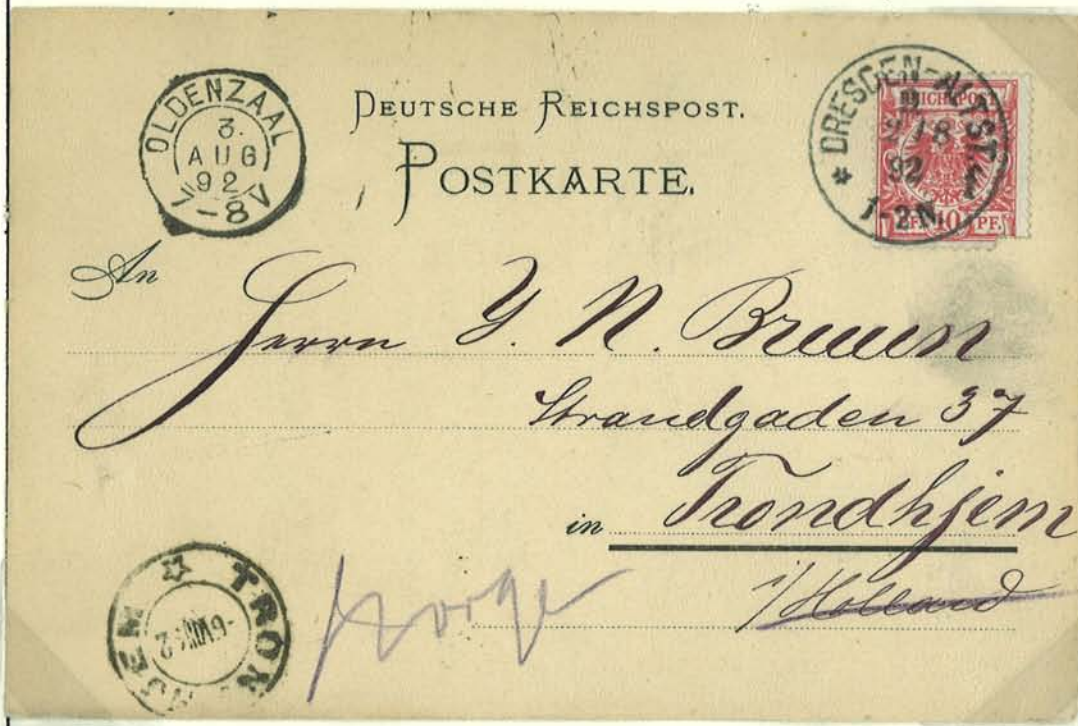 OLDENZAAL
3.
AUG
92
7-8V
DEUTSCHE REICHSPOST.
POSTKARTE.
DRESDEN-ALTST.
REICHSPOST
92
1-2N.
10 PF.
An
Herrn Y. N. Bruun
Strandgaden 37
in Trondhjem
i/Holland
Norge
TRON